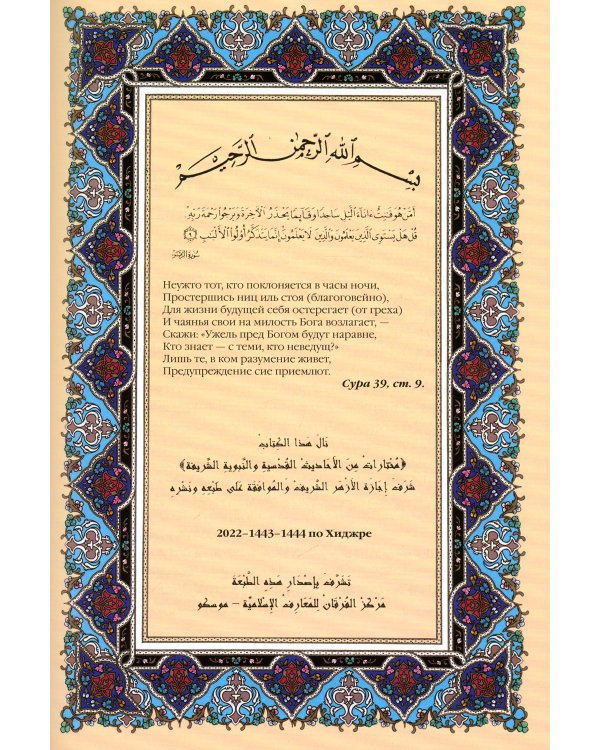 بِسْمِ اللَّهِ الرَّحْمَٰنِ الرَّحِيمِ
أَمَّنْ هُوَ قَانِتٌ ءَانَاءَ الَّيْلِ سَاجِدًا وَقَائِمًا يَحْذَرُ الْآخِرَةَ وَيَرْجُوا رَحْمَةَ رَبِّهِ
قُلْ هَلْ يَسْتَوِى الَّذِينَ يَعْلَمُونَ وَالَّذِينَ لَا يَعْلَمُونَ إِنَّمَا يَتَذَكَّرُ أُولُوا الْأَلْبَٰبِ ﴿٩﴾
سورة الزمر
Неужто тот, кто поклоняется в часы ночи,
Простершись ниц иль стоя (благоговейно),
Для жизни будущей себя остерегает (от греха)
И чаянья свои на милость Бога возлагает, —
Скажи: «Ужель пред Богом будут наравне,
Кто знает — с теми, кто неведущ?»
Лишь те, в ком разумение живет,
Предупреждение сие приемлют.
Сура 39, ст. 9.
نال هذا الكتاب
﴿مختارات من الأحاديث القدسية والنبوية الشريفة﴾
شرف إجازة الأزهر الشريف والموافقة على طبعه ونشره
2022–1443–1444 по Хиджре
تشرف بإصدار هذه الطبعة
مركز الفرقان للمعارف الإسلامية – موسكو